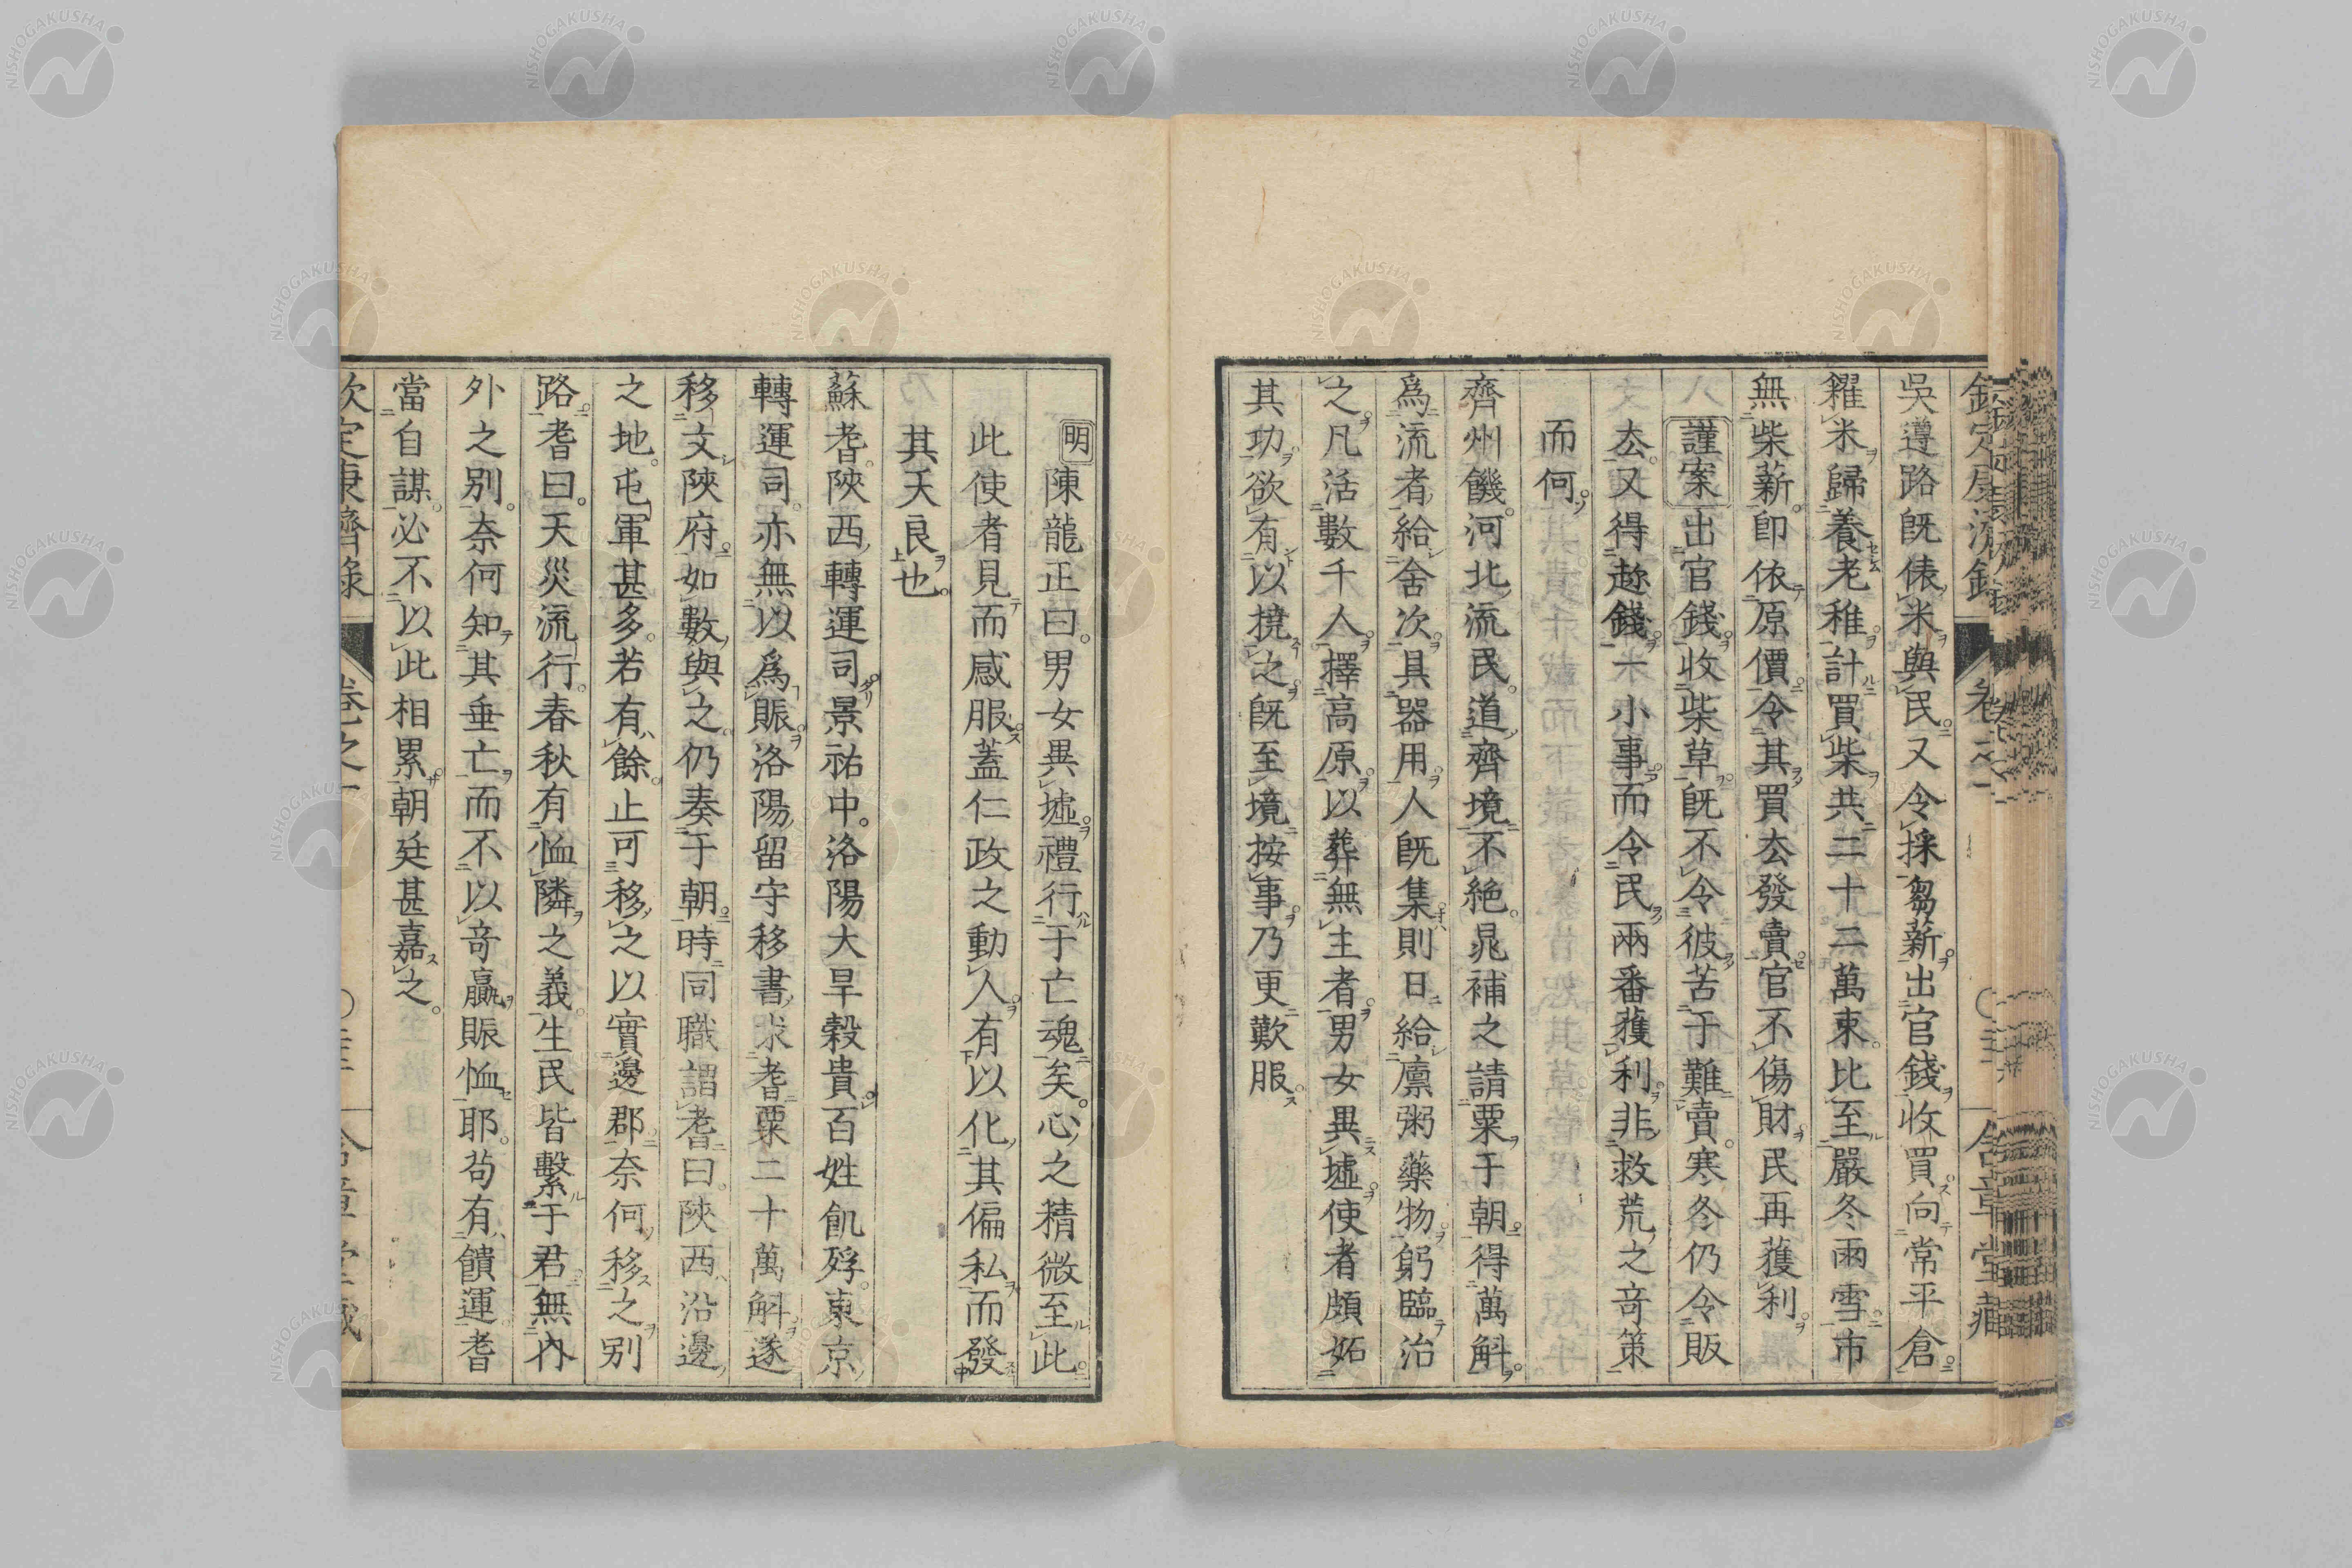 吳遵路既俵米與民又令採芻薪出官錢收買向常平倉
糴米歸養老稚計買柴共二十二萬束比至嚴冬雨雪市
無柴薪即依原價令其買去發賣官不傷財民再獲利
謹案出官錢收柴草既不令彼苦于難賣寒冬仍令販
去又得趁錢一小事而令民兩番獲利非救荒之奇策
而何
齊州饑河北流民道齊境不絕晁補之請粟于朝得萬斛
爲流者給舍次具器用人既集則日給廩粥藥物躬臨治
之凡活數千人擇高原以葬無主者男女異墟使者頗妬
其功欲有以撓之既至境按事乃更歎服
明陳龍正曰男女異墟禮行于亡魂矣心之精微至此
此使者見而感服蓋仁政之動人有以化其偏私而發
其天良也
蘇耆陝西轉運司景祐中洛陽大旱穀貴百姓飢殍東京
轉運司亦無以爲賑洛陽留守移書求耆粟二十萬斛遂
移文陝府如數與之仍奏于朝時同職謂耆曰陝西沿邊
之地屯軍甚多若有餘止可移之以實邊郡奈何移之別
路耆曰天災流行春秋有恤隣之義生民皆繫于君無內
外之別奈何知其垂亡而不以奇贏賑恤耶苟有饋運耆
當自謀必不以此相累朝廷甚嘉之
欽定康濟錄
卷之